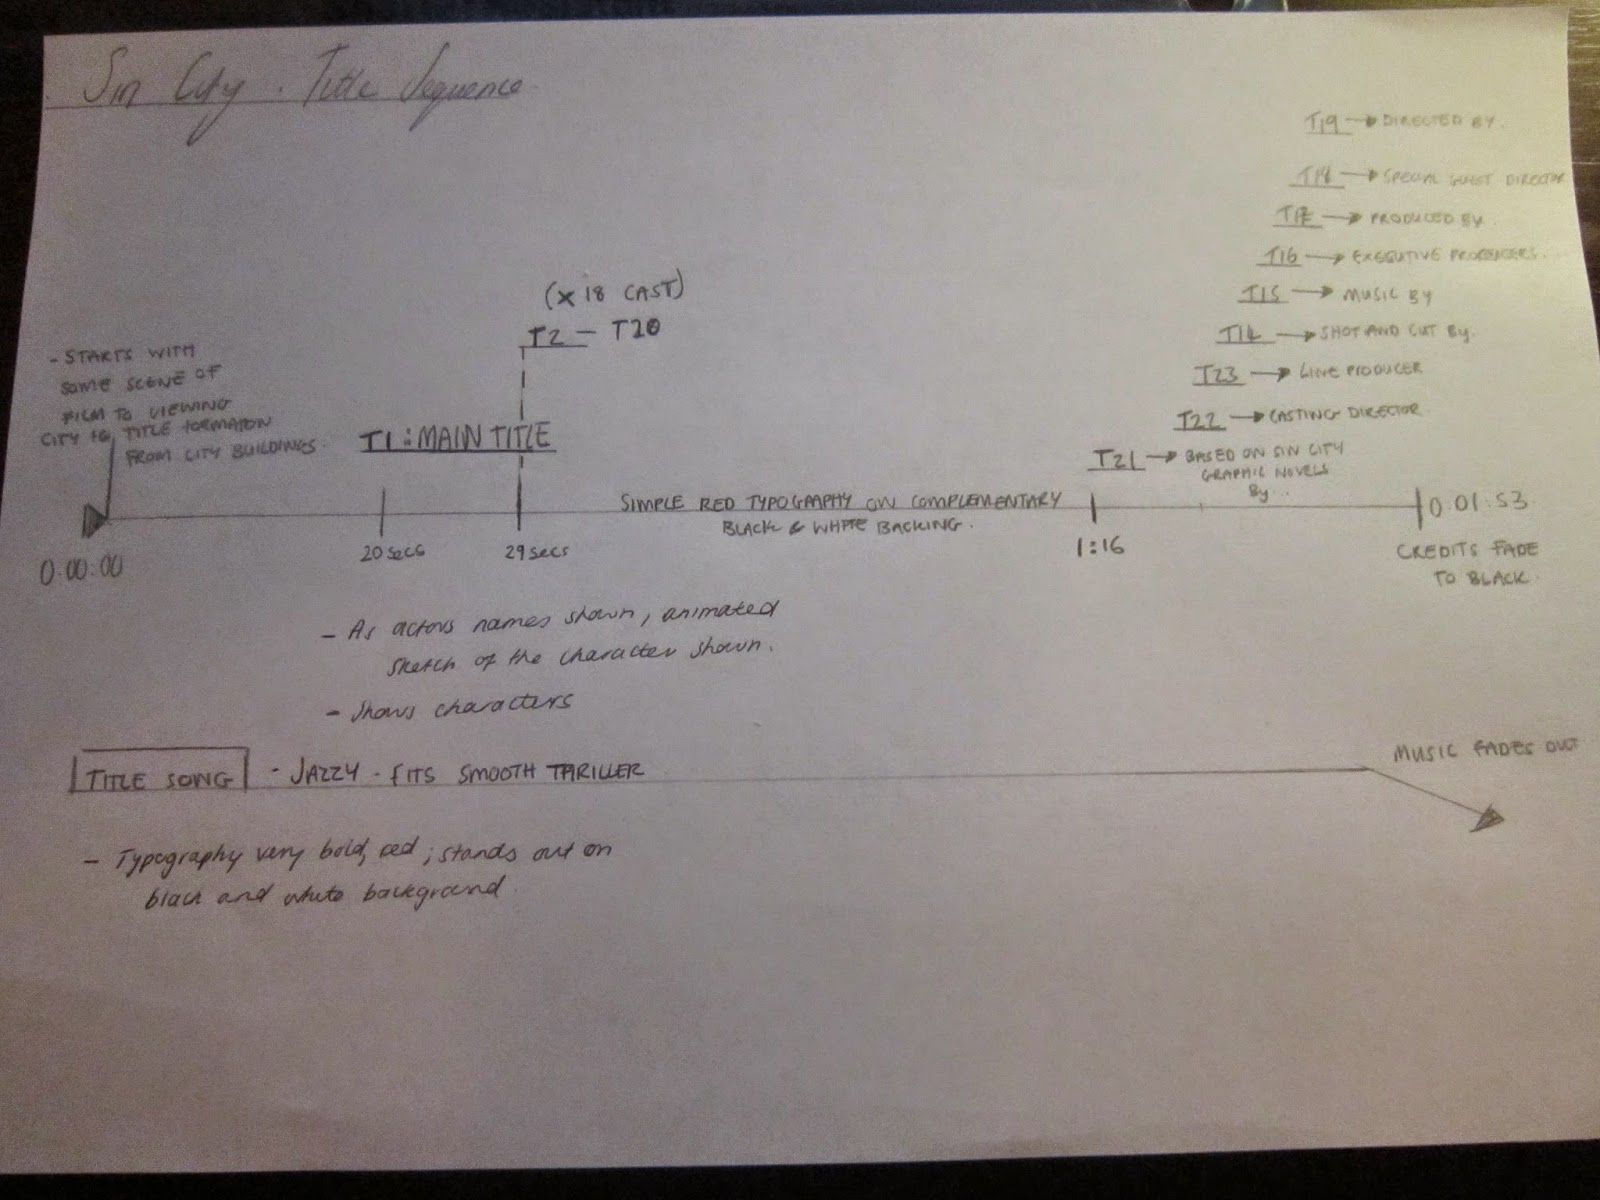 Sin City . Title Sequence
T19 → DIRECTED BY.
T18 → SPECIAL GUEST DIRECTOR
T17 → PRODUCED BY.
T16 → EXECUTIVE PRODUCERS.
T15 → MUSIC BY
T14 → SHOT AND CUT BY.
T23 → LINE PRODUCER
T22 → CASTING DIRECTOR
T21 → BASED ON SIN CITY
GRAPHIC NOVELS
By...
(x 18 CAST)
T2 – T20
- STARTS WITH
SOME SCENE OF
FILM TO VIEWING
CITY TO TITLE FORMATION
FROM CITY BUILDINGS.
T1 : MAIN TITLE
SIMPLE RED TYPOGRAPHY ON COMPLEMENTARY
BLACK & WHITE BACKING.
0:00:00
20 secs
29 secs
1:16
0:01:53
CREDITS FADE
TO BLACK.
- As actors names shown, animated
sketch of the character shown.
- Shows characters
TITLE SONG - JAZZY - FITS SMOOTH THRILLER
MUSIC FADES OUT
- Typography very bold, red ; stands out on
black and white background.